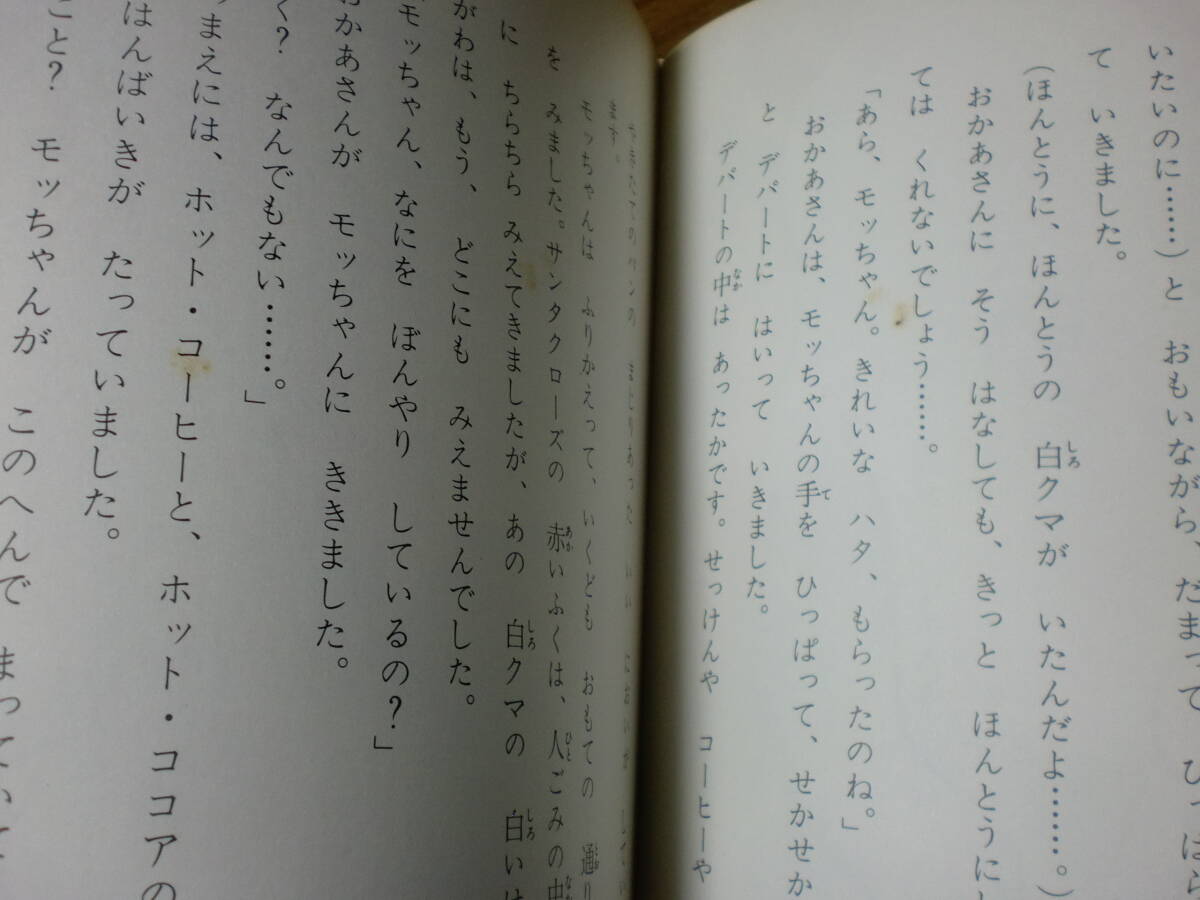 いたいのに……）と　おもいながら、だまって　ひっぱら
て　いきました。
（ほんとうに、ほんとうの　白クマが　いたんだよ……。）
おかあさんに　そう　はなしても、きっと　ほんとうに
ては　くれないでしょう……。
「あら、モッちゃん。きれいな　ハタ、もらったのね。」
おかあさんは、モッちゃんの手を　ひっぱって、せかせか
と　デパートに　はいって　いきました。
デパートの中は　あったかです。せっけんや　コーヒーや
やきたてのパンの　まじりあった　いい　においが
ます。
モッちゃんは　ふりかえって、いくども　おもての　通り
を　みました。サンタクローズの　赤いふくは、人ごみの中
に　ちらちら　みえてきましたが、あの　白クマの　白いけ
がわは、もう、どこにも　みえませんでした。
モッちゃん、なにを　ぼんやり　しているの？」
おかあさんが　モッちゃんに　ききました。
く？　なんでもない……。」
まえには、ホット・コーヒーと、ホット・ココアの
はんばいきが　たっていました。
こと？　モッちゃんが　このへんで　まっていて